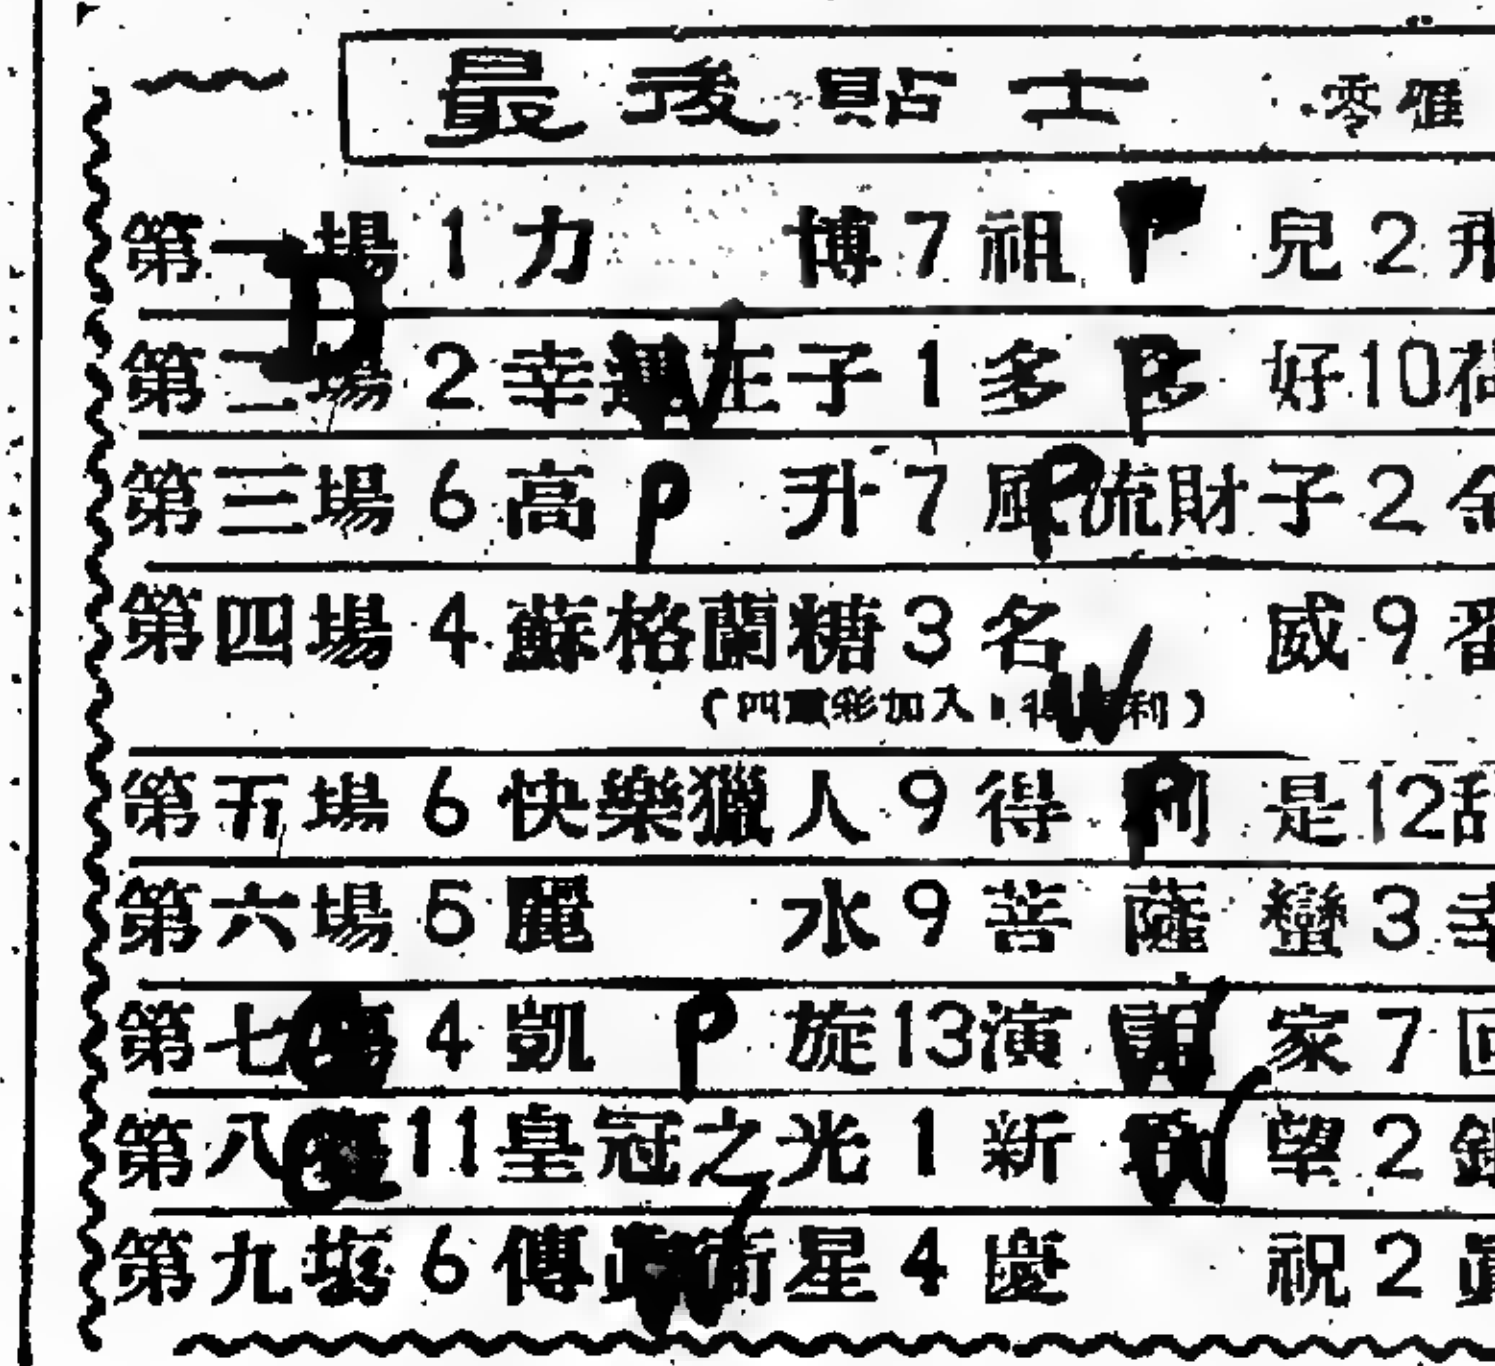 最後貼士 零雁
第一場 1 力博 7 祖 P 兒 2 飛
D
第二場 2 幸運 W 王子 1 多 P 好 10
第三場 6 高 P 升 7 風 P 流財子 2 金
第四場 4 蘇格蘭糖 3 名威 9 番
(四重彩加入 1 得 W 利)
第五場 6 快樂獵人 9 得利 P 是 12 甜
第六場 5 麗水 9 菩薩蠻 3 幸
第七場 Q 4 凱 P 旋 13 演說 W 家 7 回
第八場 Q 11 皇冠之光 1 新 W 望 2
第九場 6 傳真 W 衛星 4 慶祝 2 真